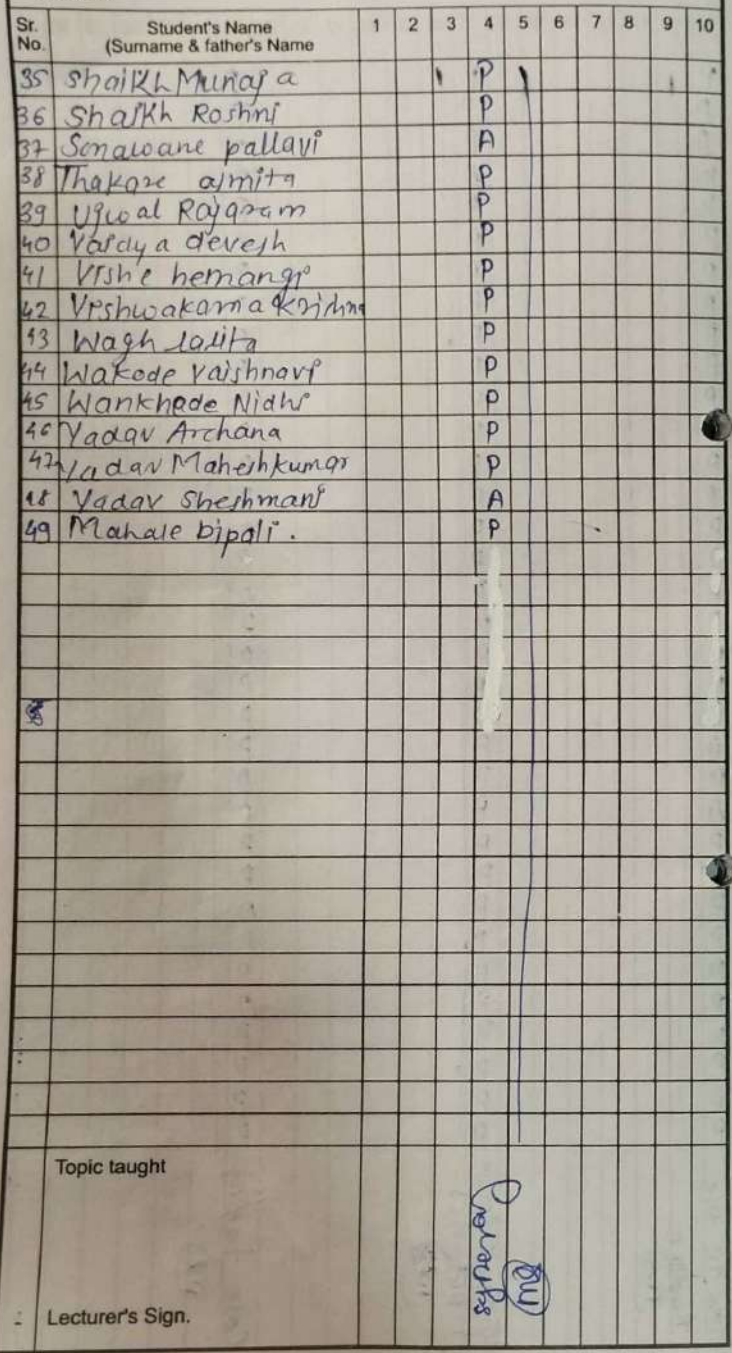 Sr. No. Student's Name (Surname & father's Name 1 2 3 4 5 6 7 8 9 10
35 Shaikh Munaja P
36 Shaikh Roshni P
37 Sonawane pallavi A
38 Thakare asmita P
39 Ugwal Rajaram P
40 Vaidya devesh P
41 Vishe hemangi P
42 Vishwakarma Krishna P
43 Wagh lalita P
44 Wakode Vaishnavi P
45 Wankhade Nidhi P
46 Yadav Archana P
47 Yadav Maheshkumar P
48 Yadav Sheshmani A
49 Mahale Dipali. P
Topic taught
Lecturer's Sign.